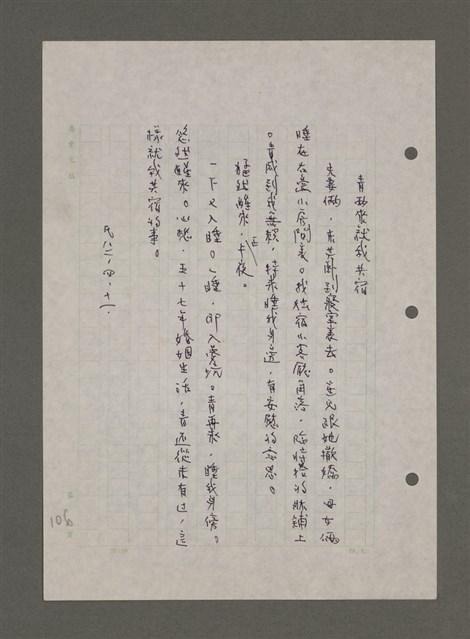 青再來就我共宿
夫妻倆,衣共斷到
裏去。逆兒跟她撒嬌,母女倆
睡在右邊小房間裏。我獨宿小客廳角落,臨時搭的牀鋪上
。青感到我無賴,特來睡我身邊,有安慰的意思。
猛然醒來,正午夜。
一下又入睡。一睡,即入夢境。青再來,睡我身傍。
忽然醒來。心想,五十七年婚姻生活,青還從未有过,這
樣就我共宿的事。
民八二.四.十一.
106